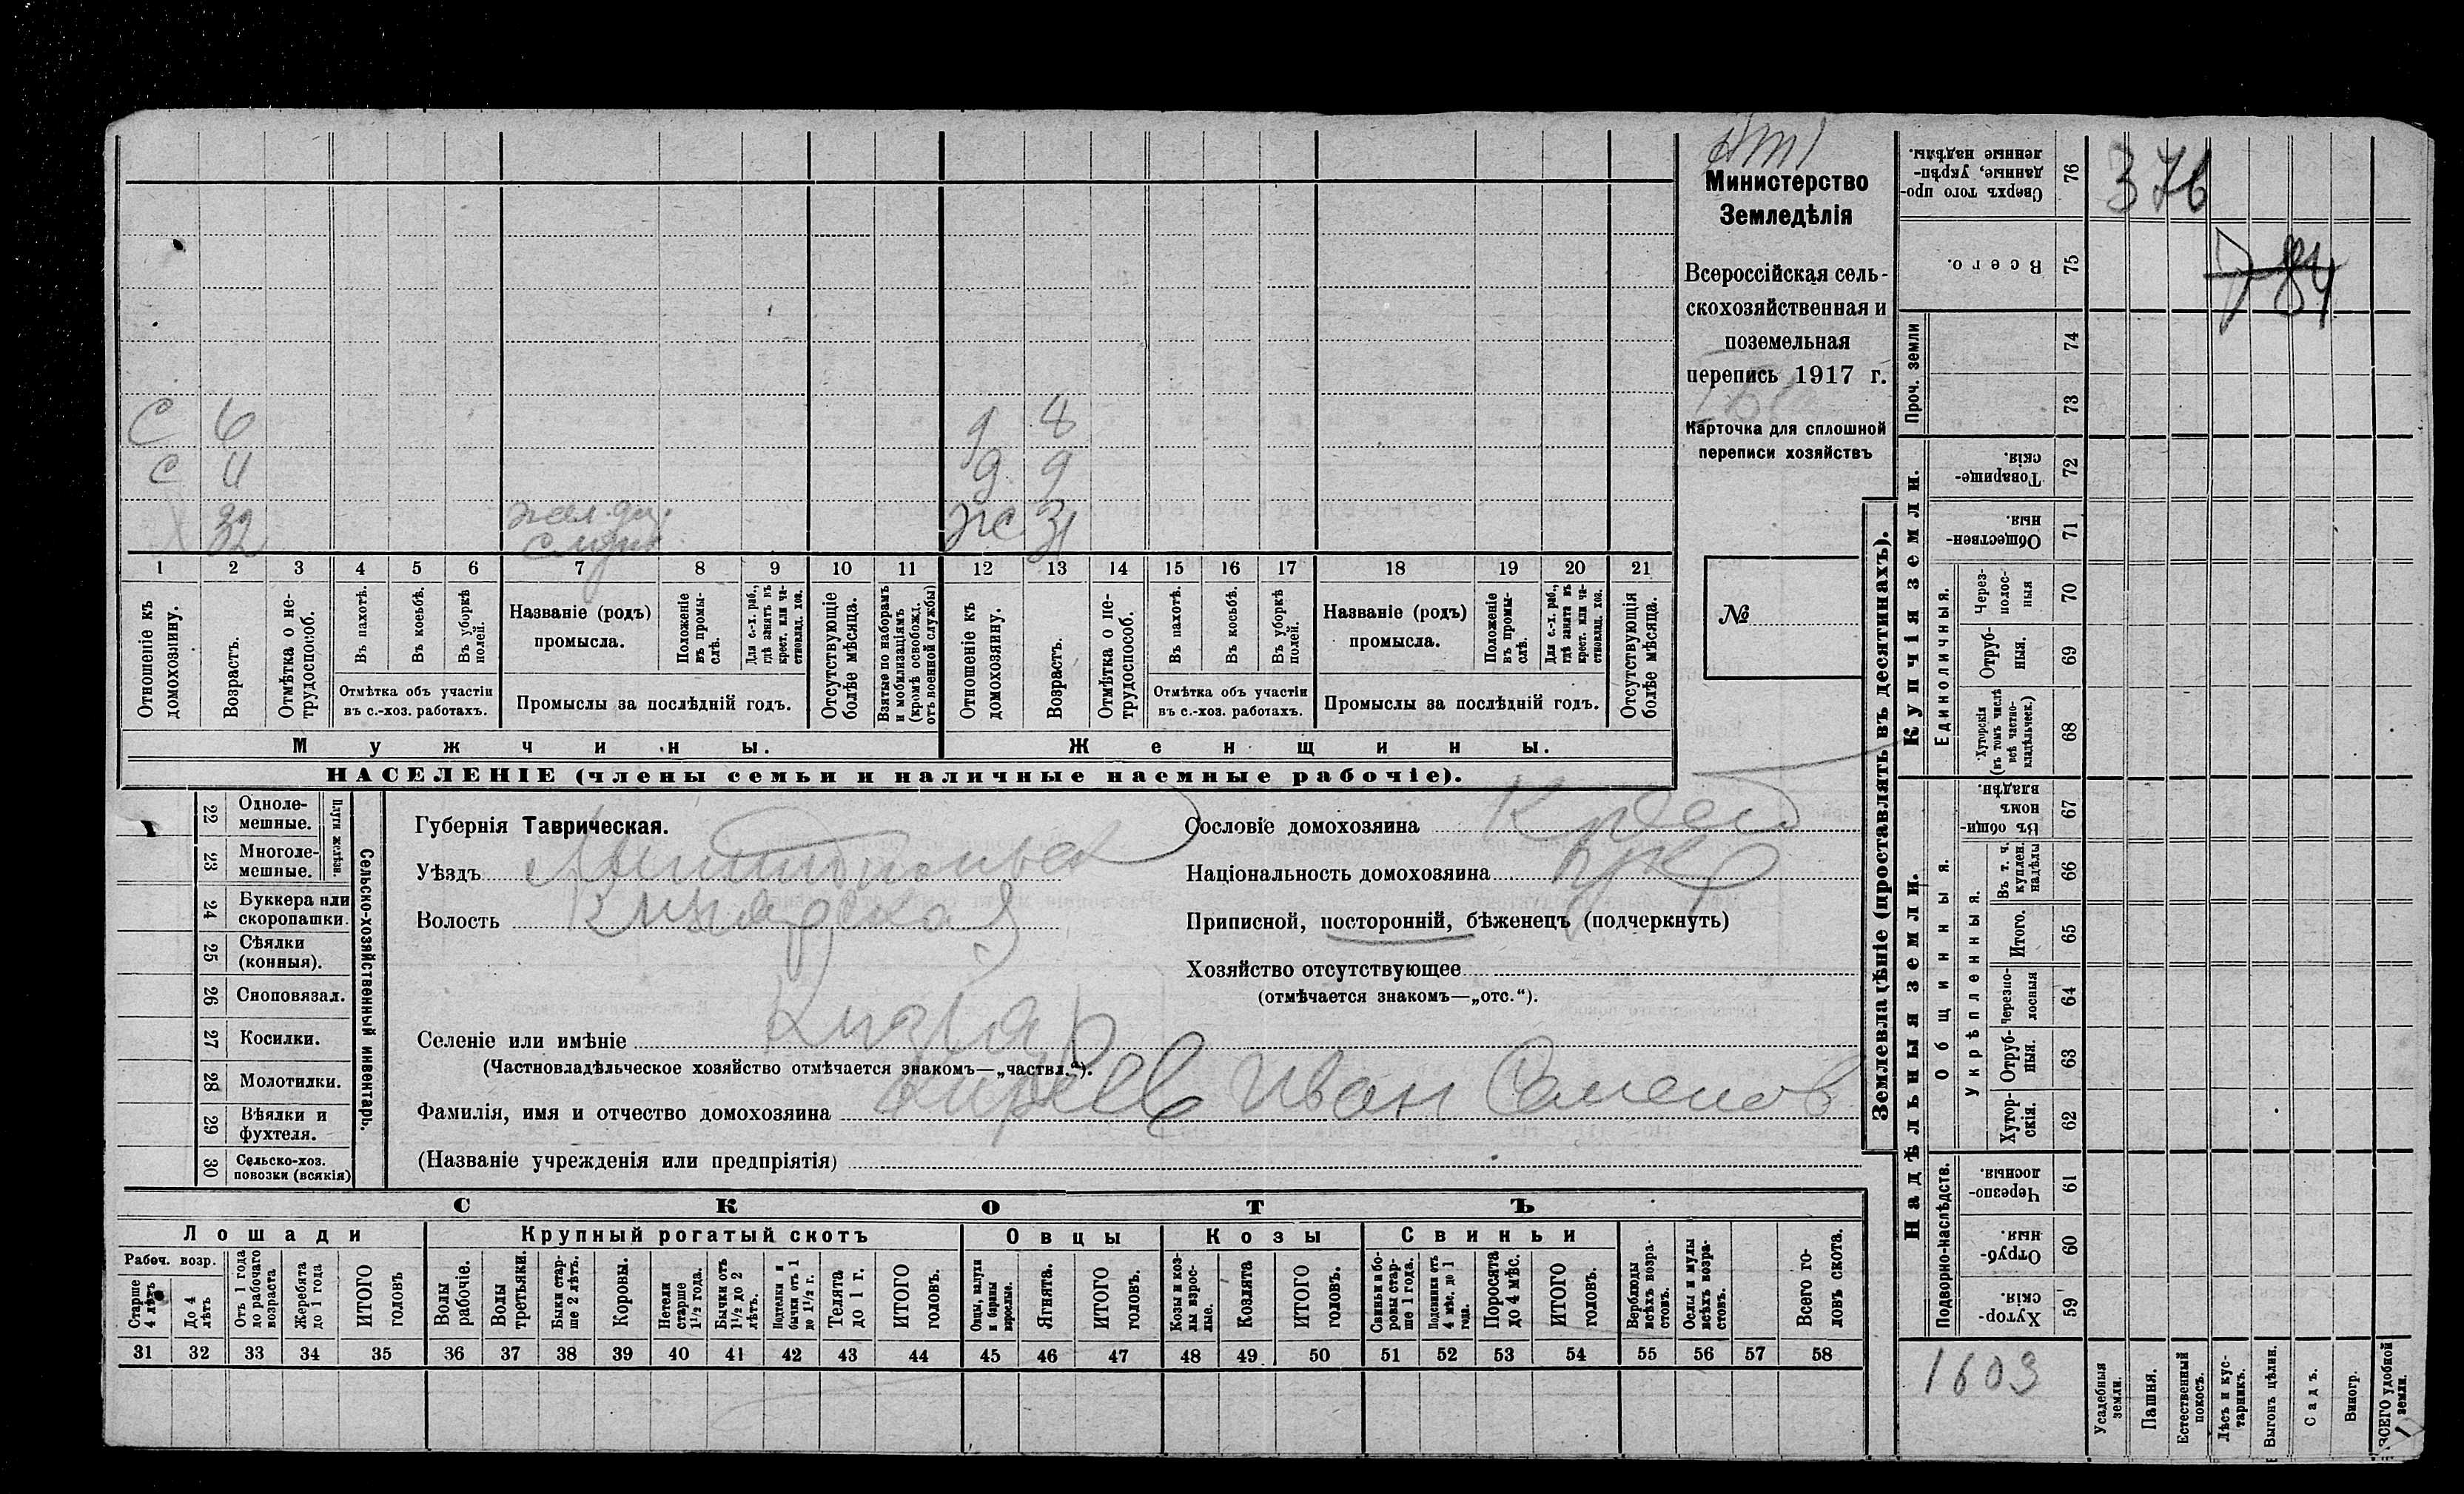 Министерство
Земледѣлія
Всероссійская сель-
скохозяйственная и
поземельная
перепись 1917 г.
Карточка для сплошной
переписи хозяйствъ
№
С 6 д 8
С 4 д. 9
32 жел. дор. Ж 31
служ
1 2 3 4 5 6 7 8 9 10 11 12 13 14 15 16 17 18 19 20 21
Отношеніе къ домохозяину.
Возрастъ.
Отмѣтка о не-трудоспособ.
Въ пахотѣ.
Въ косьбѣ.
Въ уборкѣ полей.
Отмѣтка объ участіи въ с.-хоз. работахъ.
Названіе (родъ) промысла.
Положеніе въ промы-слѣ.
Для с.-х. раб., гдѣ занятъ въ крест. или ча-стновлад. хоз.
Промыслы за послѣдній годъ.
Отсутствующіе болѣе мѣсяца.
Взятые по наборамъ и мобилизаціямъ (кромѣ освобожд. отъ военной службы)
Отношеніе къ домохозяину.
Возрастъ.
Отмѣтка о не-трудоспособ.
Въ пахотѣ.
Въ косьбѣ.
Въ уборкѣ полей.
Отмѣтка объ участіи въ с.-хоз. работахъ.
Названіе (родъ) промысла.
Положеніе въ промы-слѣ.
Для с.-х. раб., гдѣ занята въ крест. или ча-стновлад. хоз.
Промыслы за послѣдній годъ.
Отсутствующія болѣе мѣсяца.
Мужчины. Женщины.
НАСЕЛЕНІЕ (члены семьи и наличные наемные рабочіе).
22 Одноле-мешные.
23 Многоле-мешные.
Плуги желѣзн.
24 Буккера или скоропашки.
25 Сѣялки (конныя).
26 Сноповязал.
27 Косилки.
28 Молотилки.
29 Вѣялки и фухтеля.
30 Сельско-хоз. повозки (всякія)
Сельско-хозяйственный инвентарь.
Губернія Таврическая.
Уѣздъ Мелитопольск
Волость Кизіярская
Селеніе или имѣніе Кизіяр
(Частновладѣльческое хозяйство отмѣчается знакомъ—„частвл.“).
Фамилія, имя и отчество домохозяина Киреев Иван Семенов
(Названіе учрежденія или предпріятія)
Сословіе домохозяина Крест
Національность домохозяина
Приписной, посторонній, бѣженецъ (подчеркнуть)
Хозяйство отсутствующее
(отмѣчается знакомъ—„отс.“).
СКОТЪ
Лошади Крупный рогатый скотъ Овцы Козы Свиньи
Рабоч. возр.
Старше 4 лѣтъ
До 4 лѣтъ
Отъ 1 года до рабочаго возраста
Жеребята до 1 года
ИТОГО головъ
Волы рабочіе.
Волы третьяки.
Быки стар-ше 2 лѣтъ.
Коровы.
Нетели старше 1½ года.
Бычки отъ 1½ до 2 лѣтъ.
Подтелки и бычки отъ 1 до 1½ г.
Телята до 1 г.
ИТОГО головъ.
Овцы, валухи и бараны взрослые.
Ягнята.
ИТОГО головъ.
Козы и коз-лы взрос-лые.
Козлята
ИТОГО головъ.
Свиньи и бо-ровы стар-ше 1 года.
Подсвинки отъ 4 мѣс. до 1 года.
Поросята до 4 мѣс.
ИТОГО головъ.
Верблюды всѣхъ возра-стовъ.
Ослы и мулы всѣхъ возра-стовъ.
Всего го-ловъ скота.
31 32 33 34 35 36 37 38 39 40 41 42 43 44 45 46 47 48 49 50 51 52 53 54 55 56 57 58
Землевладѣніе (проставлять въ десятинахъ).
Сверхъ того про-данные, укрѣп-ленные надѣлы. 76
376
Всего. 75
7 84
Проч. земли 74 73
Купчія земли.
Товарище-скія. 72
Обществен-ныя. 71
Единоличныя.
Через-полос-ныя 70
Отруб-ныя. 69
Хуторскія (въ томъ числѣ всѣ частно-владѣльческ.) 68
Надѣльныя земли.
Общинныя.
Въ общи-номъ владѣн. 67
Укрѣпленныя.
Въ т. ч. куплен. надѣлы 66
Итого. 65
Черезпо-лосныя 64
Отруб-ныя. 63
Хутор-скія. 62
Подворно-наслѣдств.
Черезпо-лосныя. 61
Отруб-ныя. 60
Хутор-скія. 59
1603
Усадебныя земли.
Пашня.
Естественный покосъ.
Лѣсъ и кус-тарникъ.
Выгонъ цѣлин.
Садъ.
Виногр.
ВСЕГО удобной земли.